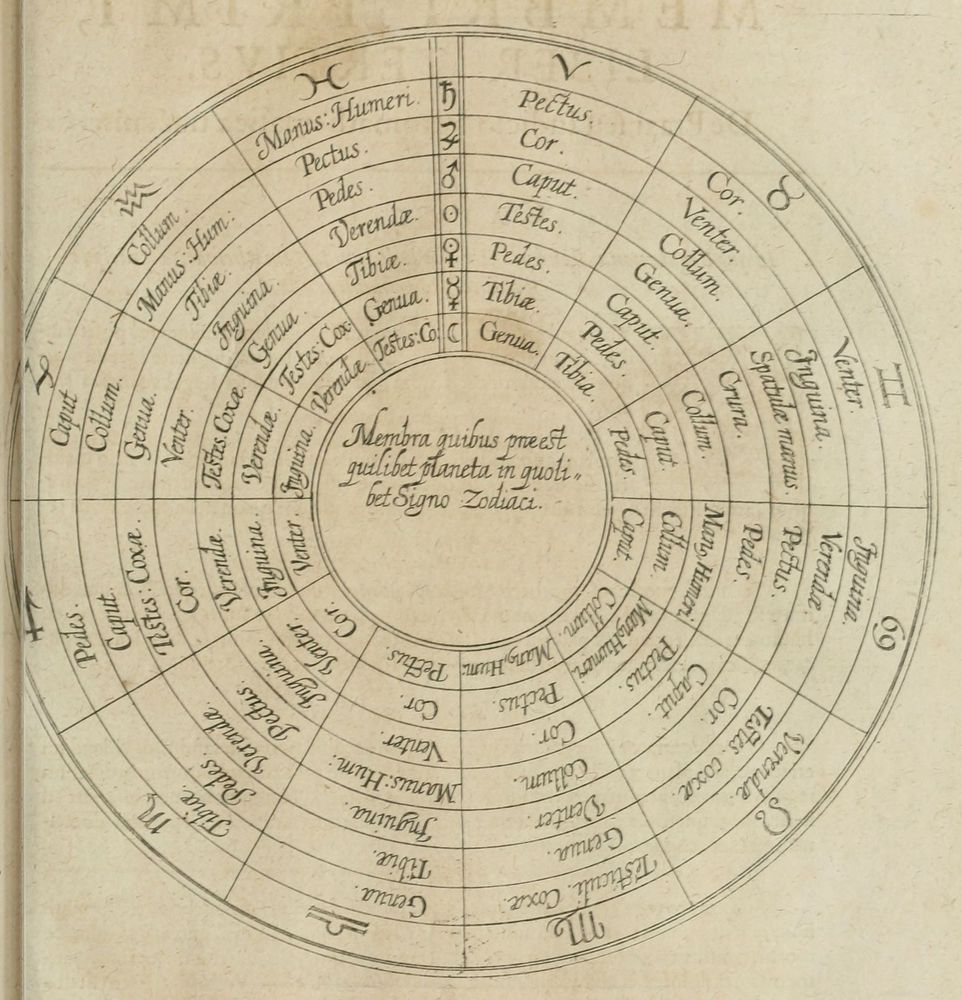 ♈
Pectus.
Cor.
Caput.
Testes.
Pedes.
Tibiæ.
Genua.
♉
Cor.
Venter.
Collum.
Genua.
Caput.
Pedes.
Tibia.
♊
Venter.
Inguina.
Spatulæ manus.
Crura.
Collum.
Caput.
Pedes.
♋
Inguina.
Verendæ.
Pectus.
Pedes.
Manꝰ Humeri.
Collum.
Caput.
♌
Verendæ.
Testes. coxæ.
Cor.
Caput.
Pectus.
Manꝰ Humeri.
Collum.
♍
Testiculi. Coxæ.
Genua.
Venter.
Collum.
Cor.
Pectus.
Manꝰ Hum:
♎
Genua.
Tibiæ.
Inguina
Manus: Hum:
Venter.
Cor
Pectus.
♏
Tibiæ.
Pedes.
Verendæ.
Pectus.
Inguina.
Venter.
Cor.
♐
Pedes.
Caput.
Testes: Coxæ.
Cor.
Verendæ.
Inguina.
Venter.
♑
Caput
Collum.
Genua.
Venter.
Testes: Coxæ.
Verendæ.
Inguina.
♒
Collum.
Manus: Hum:
Tibiæ.
Inguina.
Genua.
Testes: Cox
Verendæ
♓
Manus: Humeri.
Pectus.
Pedes.
Verendæ.
Tibiæ.
Genua.
Testes: Co
♄
♃
♂
☉
♀
☿
☾
Membra quibus præest
quilibet planeta in quoli„
bet Signo Zodiaci.